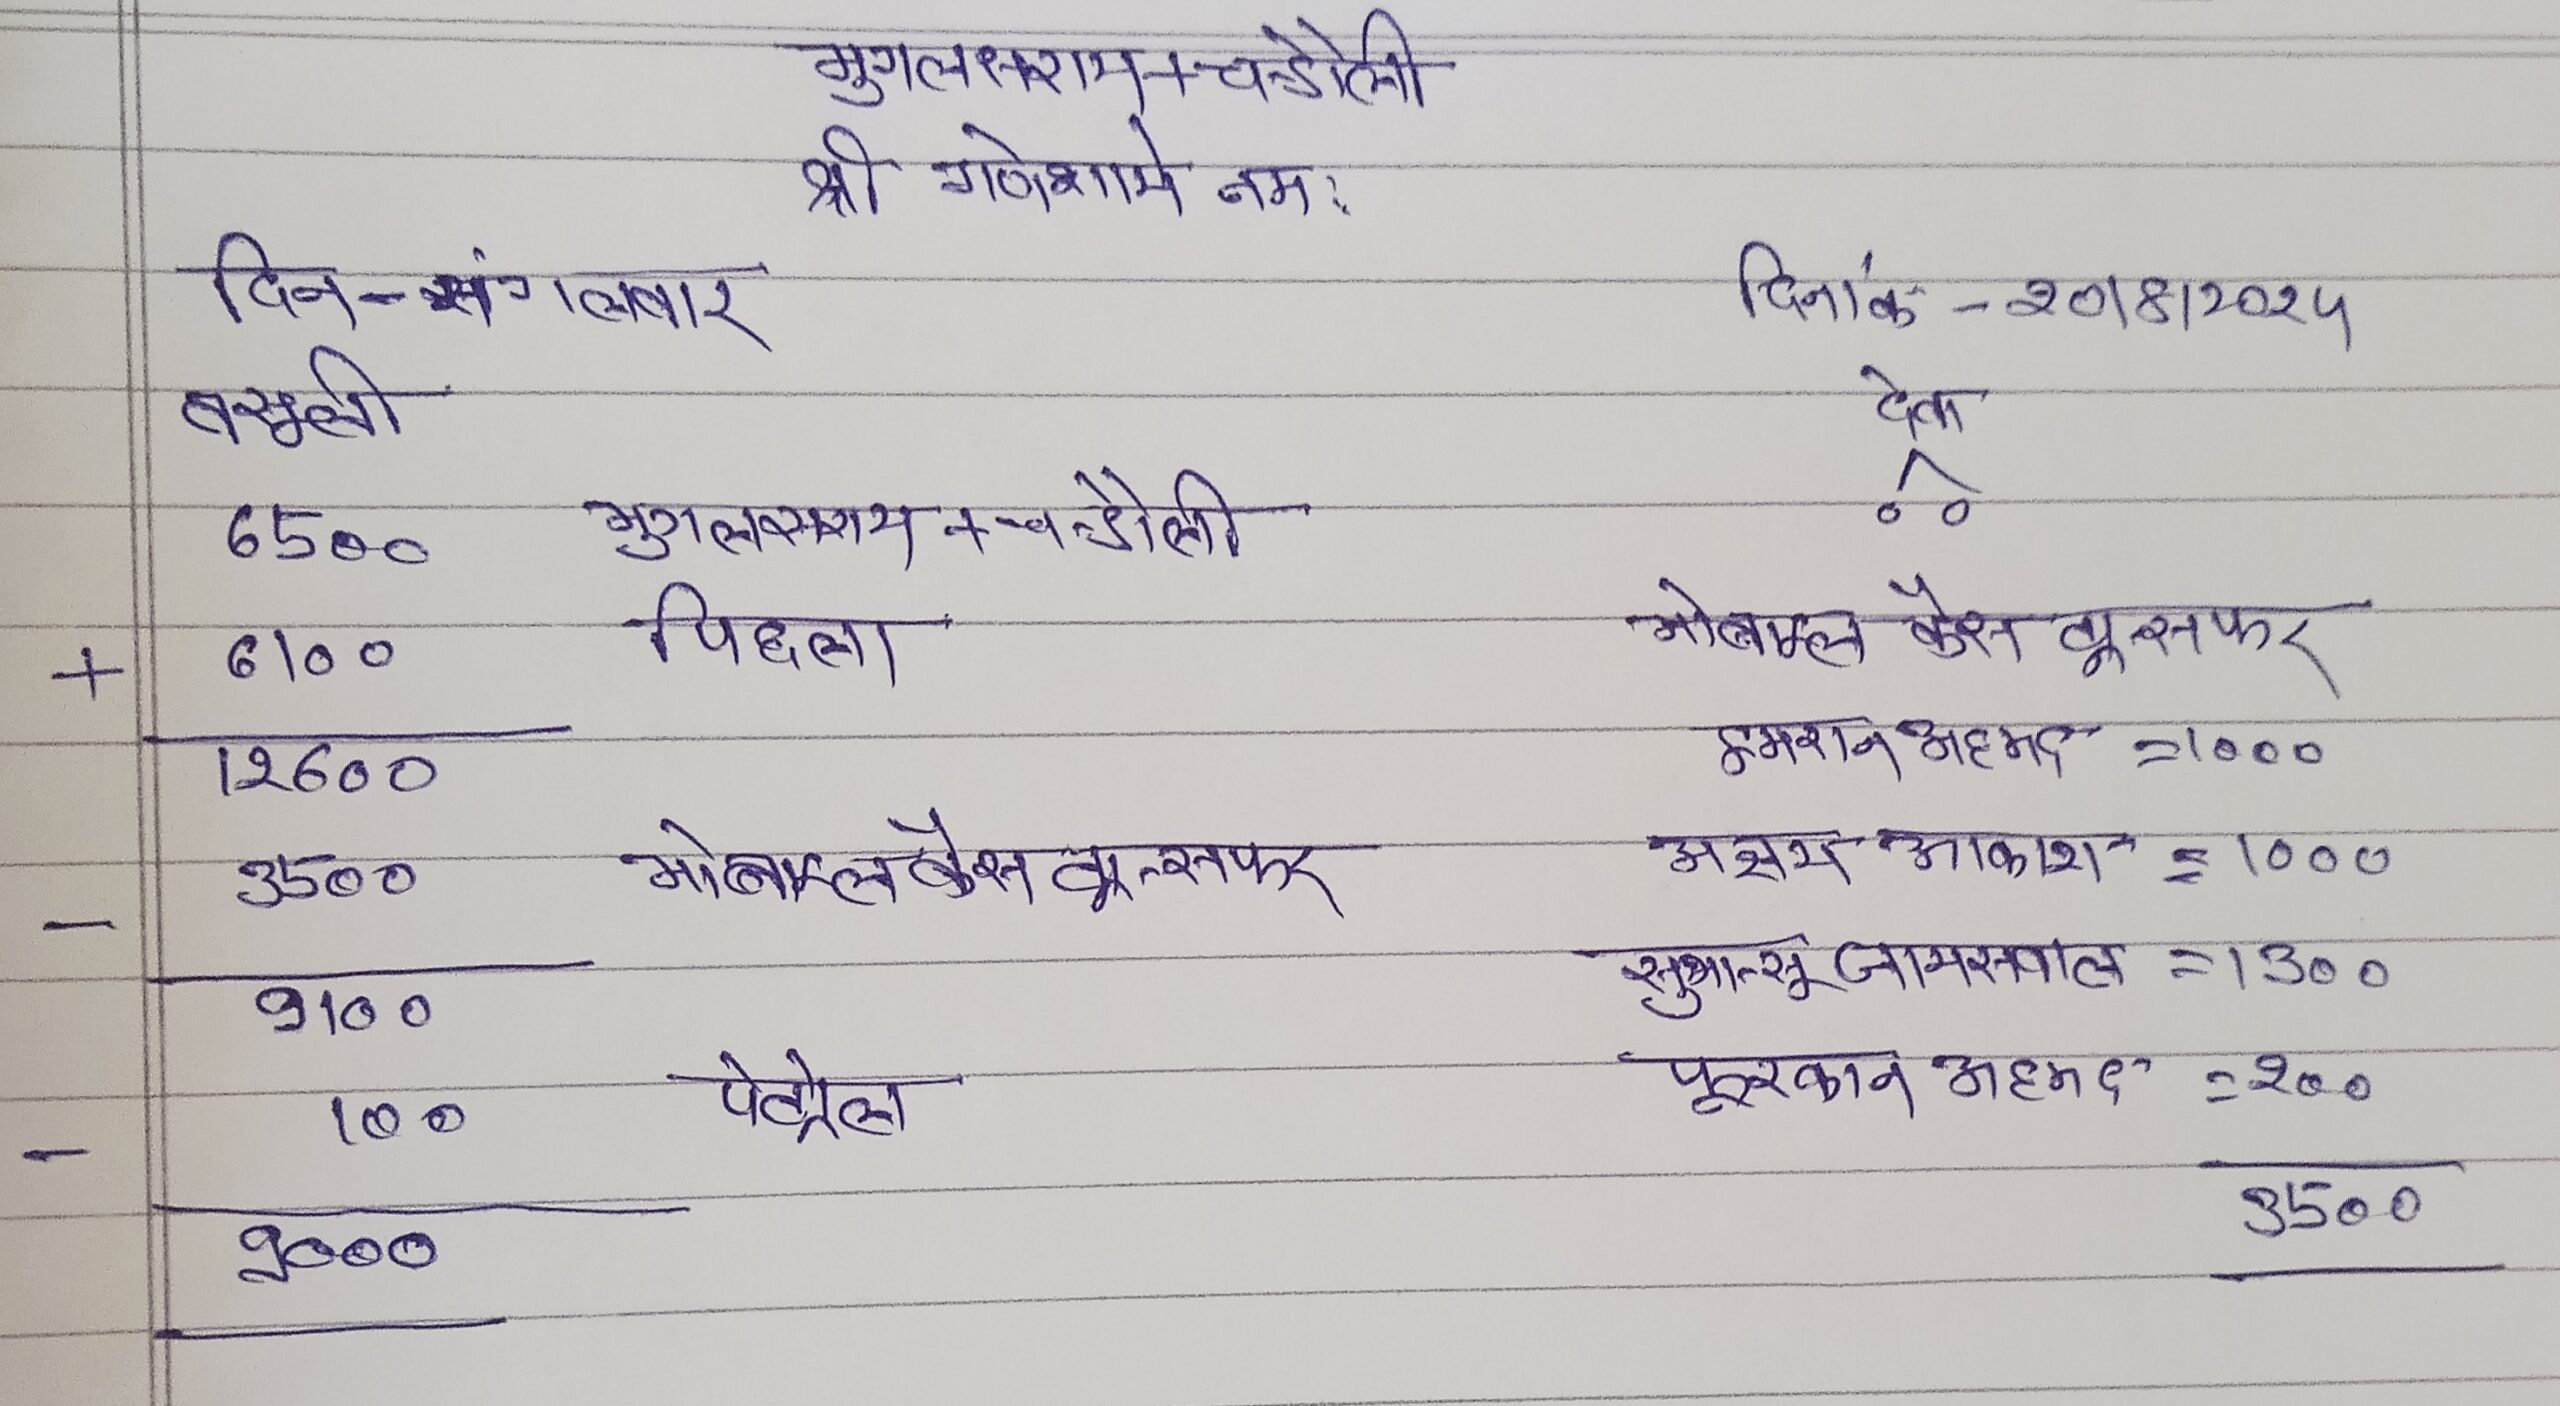 मुगलसराय + चन्डौली
श्री गणेशाये नमः
दिन - मंगलवार दिनांक - 20/8/2024
वसूली देवा
6500 मुगलसराय + चन्डौली
+ 6100 पिछला मोबाइल कैस ट्रान्सफर
12600 इमरान अहमद = 1000
- 3500 मोबाइल कैस ट्रान्सफर अक्षय आकाश = 1000
9100 सुभान्सू जायसवाल = 1300
- 100 पेट्रोल फूरकान अहमद = 200
9000 3500